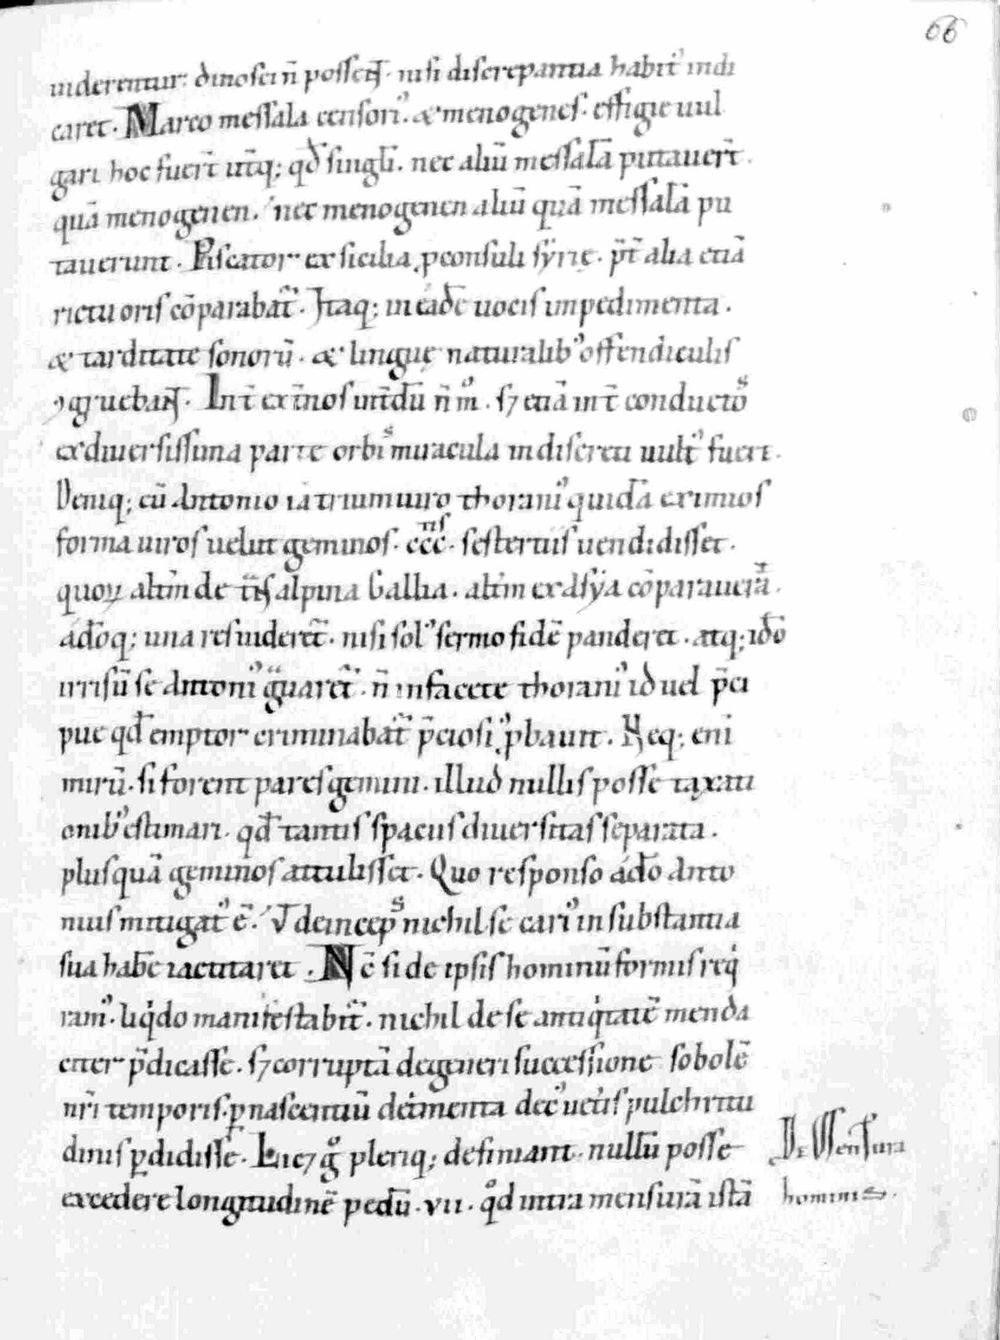 66
uiderentur: dinosci n̄ possen̄t. nisi discrepantia habit᷒ indi
caret. Marco messala censori᷒. & menogenes. effigie uul
gari hoc fuer̄t ut̄q; qd̄ singl̄i. nec aliū messalā putauer̄t.
quā menogenen. nec menogenen aliū quā messalā pu
tauerunt. Piscator ex sicilia ꝓconsuli sẏrie. p̄t alia etiā
rictu oris cōparabat̄. Itaq; in eadē uocis impedimenta.
& tarditate sonorū. & linguę naturalib᷒ offendiculis
ꝯgruebant̄. Int̄ ext̄nos int̄dū n̄ m̊. sꝫ etiā int̄ conductos
ex diuersissima parte orbis miracula indiscreti uult᷒ fuert.
Deniq; cū Antonio iā triumuiro thorani᷒ quidā eximios
forma uiros uelut geminos. ccc̄. sestertiis uendidisset.
quoꝝ alt̄m de t̄nsalpina Gallia. alt̄m ex Asẏa cōparauerat̄.
ādōq; una res uideret̄. nisi sol᷒ sermo fidē panderet. atq; idō
irrisū se Antoni᷒ q̄raret̄. n̄ infacete thorani᷒ id uel p̄ci
pue qd̄ emptor criminabat̄ p̄ciosi᷒ ꝓbauit. Neq; eni
mirū. si forent pares gemini. illud nullis posse taxati
onib᷒ estimari. qd̄ tantis spaciis diuersitas separata.
plusquā geminos attulisset. Quo responso ádō Anto
nius mitigat᷒ ē. ut̄ deinceps nichil se cari᷒ in substantia
sua habē iactitaret. Nc̄ si de ipsis hominū formis req̇
ram᷒. liq̇do manifestabit̄. nichil de se antiq̇tatē menda
citer p̄dicasse. sꝫ corruptā degeneri successione sobolē
nr̄i temporis. ꝑ nascentiū det̄menta dec᷒ uet̄is pulchritu
dinis ꝑdidisse. Licꝫ g̊ pleriq; definiant. nullū posse
excedere longitudinē pedū. vii. qd̊ intra mensurā istā
De Mensura
hominis.